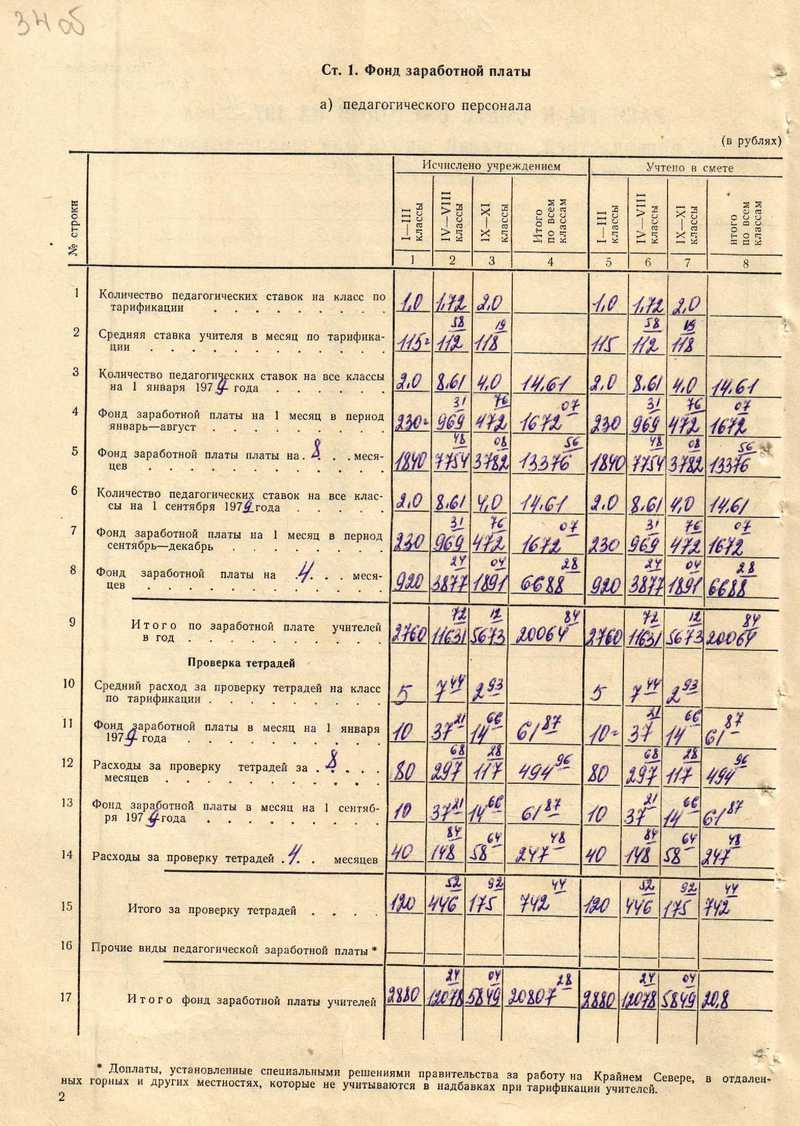 34 об
Ст. 1. Фонд заработной платы
а) педагогического персонала
(в рублях)
№ строки
Исчислено учреждением
Учтено в смете
I—III классы
IV—VIII классы
IX—XI классы
Итого по всем классам
I—III классы
IV—VIII классы
IX—XI классы
итого по всем классам
1 2 3 4 5 6 7 8
1 Количество педагогических ставок на класс по
тарификации . . . . . . . . 1,0 1,72 2,0 1,0 1,72 2,0
2 Средняя ставка учителя в месяц по тарифика-
ции . . . . . . . . . . . 115- 112 58 118 19 115 112 58 118 19
3 Количество педагогических ставок на все классы
на 1 января 1979 года . . . . . . 2,0 8,61 4,0 14,61 2,0 8,61 4,0 14,61
4 Фонд заработной платы на 1 месяц в период
январь—август . . . . . . . . 230- 969 31 472 76 1672 07 230 969 31 472 76 1672 07
5 Фонд заработной платы платы на . 8 . . меся-
цев . . . . . . . . . . . 1840 7754 48 3782 08 13376 56 1840 7754 48 3782 08 13376 56
6 Количество педагогических ставок на все клас-
сы на 1 сентября 1979 года . . . . . 2,0 8,61 4,0 14,61 2,0 8,61 4,0 14,61
7 Фонд заработной платы на 1 месяц в период
сентябрь—декабрь . . . . . . . 230 969 31 472 76 1672 07 230 969 31 472 76 1672 07
8 Фонд заработной платы на . 4 . . . меся-
цев . . . . . . . . . . . 920 3877 24 1891 04 6688 28 920 3877 24 1891 04 6688 28
9 Итого по заработной плате учителей
в год . . . . . . . . . . 2760 11631 72 5673 12 20064 84 2760 11631 72 5673 12 20064 84
Проверка тетрадей
10 Средний расход за проверку тетрадей на класс
по тарификации . . . . . . . . 5 7 44 2 93 5 7 44 2 93
11 Фонд заработной платы в месяц на 1 января
1979 года . . . . . . . . . 10 37 21 14 66 61 87 10- 37 21 14 66 61 87
12 Расходы за проверку тетрадей за . 8 . . .
месяцев . . . . . . . . . . 80 297 68 117 28 494 96 80 297 68 117 28 494 96
13 Фонд заработной платы в месяц на 1 сентяб-
ря 1979 года . . . . . . . . 10 37 21 14 66 61 87 10 37 21 14 66 61 87
14 Расходы за проверку тетрадей . 4 . . месяцев 40 148 84 58 64 247 48 40 148 84 58 64 247 48
15 Итого за проверку тетрадей . . . . 120 446 52 175 92 742 44 120 446 52 175 92 742 44
16 Прочие виды педагогической заработной платы *
17 Итого фонд заработной платы учителей 2880 12078 24 5849 04 20807 28 2880 12078 24 5849 04 20,8
* Доплаты, установленные специальными решениями правительства за работу на Крайнем Севере, в отдален-
ных горных и других местностях, которые не учитываются в надбавках при тарификации учителей.
2